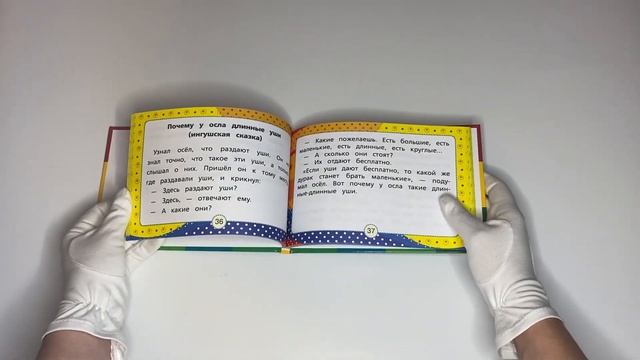 Почему у осла длинные уши
(ингушская сказка)
Узнал осёл, что раздают уши. Он не
знал точно, что такое эти уши, а только
слышал о них. Пришёл он к тому месту,
где раздавали уши, и крикнул:
— Здесь раздают уши?
— Здесь, — отвечают ему.
— А какие они?
36
— Какие пожелаешь. Есть большие, есть
маленькие, есть длинные, есть круглые...
— А сколько они стоят?
— Их отдают бесплатно.
«Если уши дают бесплатно, то какой же
дурак станет брать маленькие», — поду-
мал осёл. Вот почему у осла такие длин-
ные-длинные уши.
37